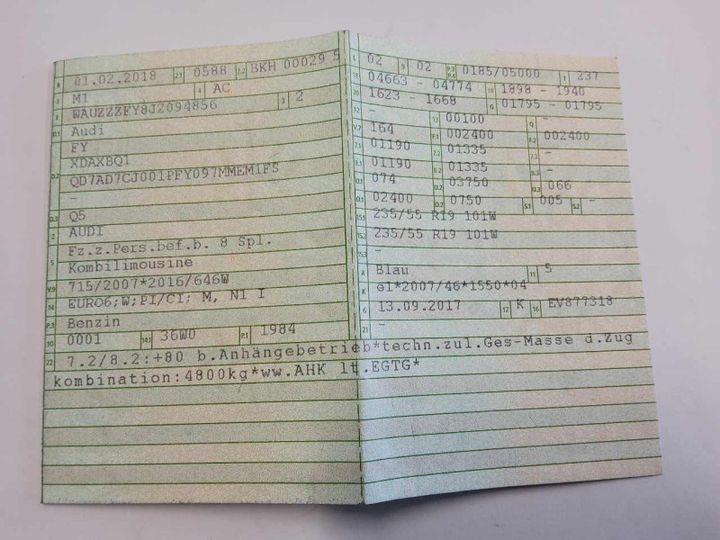 B 01.02.2018 2.1 0588 2.2 BKH 00029 5
J M1 4 AC
E WAUZZZFY8J2094856 3 2
D.1 Audi
FY
D.2 XDAXBQ1
QD7AD7CJ001PFY097MMEM1FS
-
D.3 Q5
2 AUDI
Fz.z.Pers.bef.b. 8 Spl.
5 Kombilimousine
V.9 715/2007*2016/646W
14 EURO6;W;PI/CI; M, N1 I
P.3 Benzin
10 0001 14.1 36W0 P.1 1984
L 02 9 02 P.2 P.4 0185/05000 T 237
18 04663 - 04774 19 1898 - 1940
20 1623 - 1668 G 01795 - 01795
12 - 13 00100 Q -
V.7 164 F.1 002400 F.2 002400
7.1 01190 7.2 01335 7.3 -
8.1 01190 8.2 01335 8.3 -
U.1 074 U.2 03750 U.3 066
O.1 02400 O.2 0750 S.1 005 S.2 -
15.1 235/55 R19 101W
15.2 235/55 R19 101W
15.3 -
R Blau 11 5
K e1*2007/46*1550*04
6 13.09.2017 17 K 16 EV877318
21 -
22 7.2/8.2:+80 b.Anhängebetrieb*techn.zul.Ges-Masse d.Zug
kombination:4800kg*ww.AHK lt.EGTG*